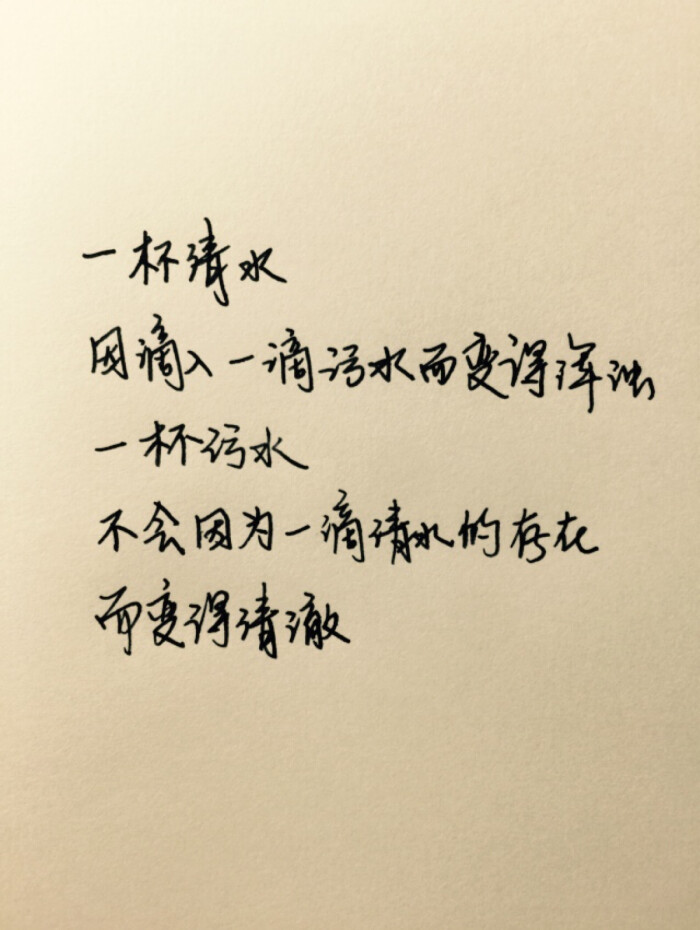 一杯清水
因滴入一滴污水而变得浑浊
一杯污水
不会因为一滴清水的存在
而变得清澈